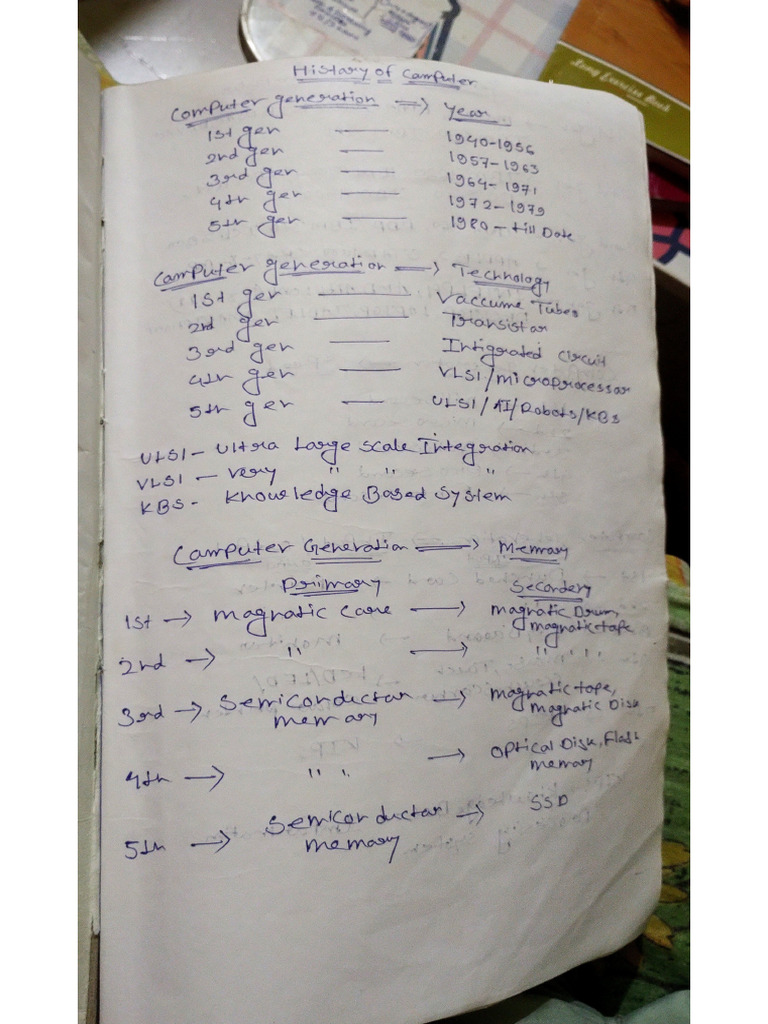 History of Computer
Computer generation → Year
1st gen — 1940-1956
2nd gen — 1957-1963
3rd gen — 1964-1971
4th gen — 1972-1979
5th gen — 1980 - till Date
Computer generation → Technology
1st gen — Vaccume Tubes
2nd gen — Transistor
3rd gen — Intigrated circuit
4th gen — VLSI/microprocessor
5th gen — ULSI/AI/Robots/KBS
ULSI - Ultra Large scale Integration
VLSI - Very " " "
KBS - Knowledge Based System
Computer Generation → Memory
Primary Secondery
1st → magnatic core → magnatic Drum,
magnatic tape
2nd → " → " " " "
3rd → Semiconductor → magnatic tape,
memory Magnatic Disk
4th → " " → Optical Disk, Flash
memory
5th → Semiconductor → SSD
memory
Long Exercise Book